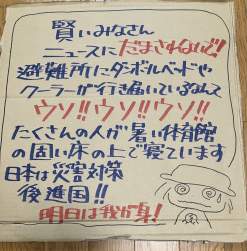 賢いみなさん
ニュースにだまされないで!
避難所にダンボールベッドや
クーラーが行き届いているなんて
ウソ!!ウソ!!ウソ!!
たくさんの人が暑い体育館
の固い床の上で寝ています
日本は災害対策
後進国!!
明日は我が身!